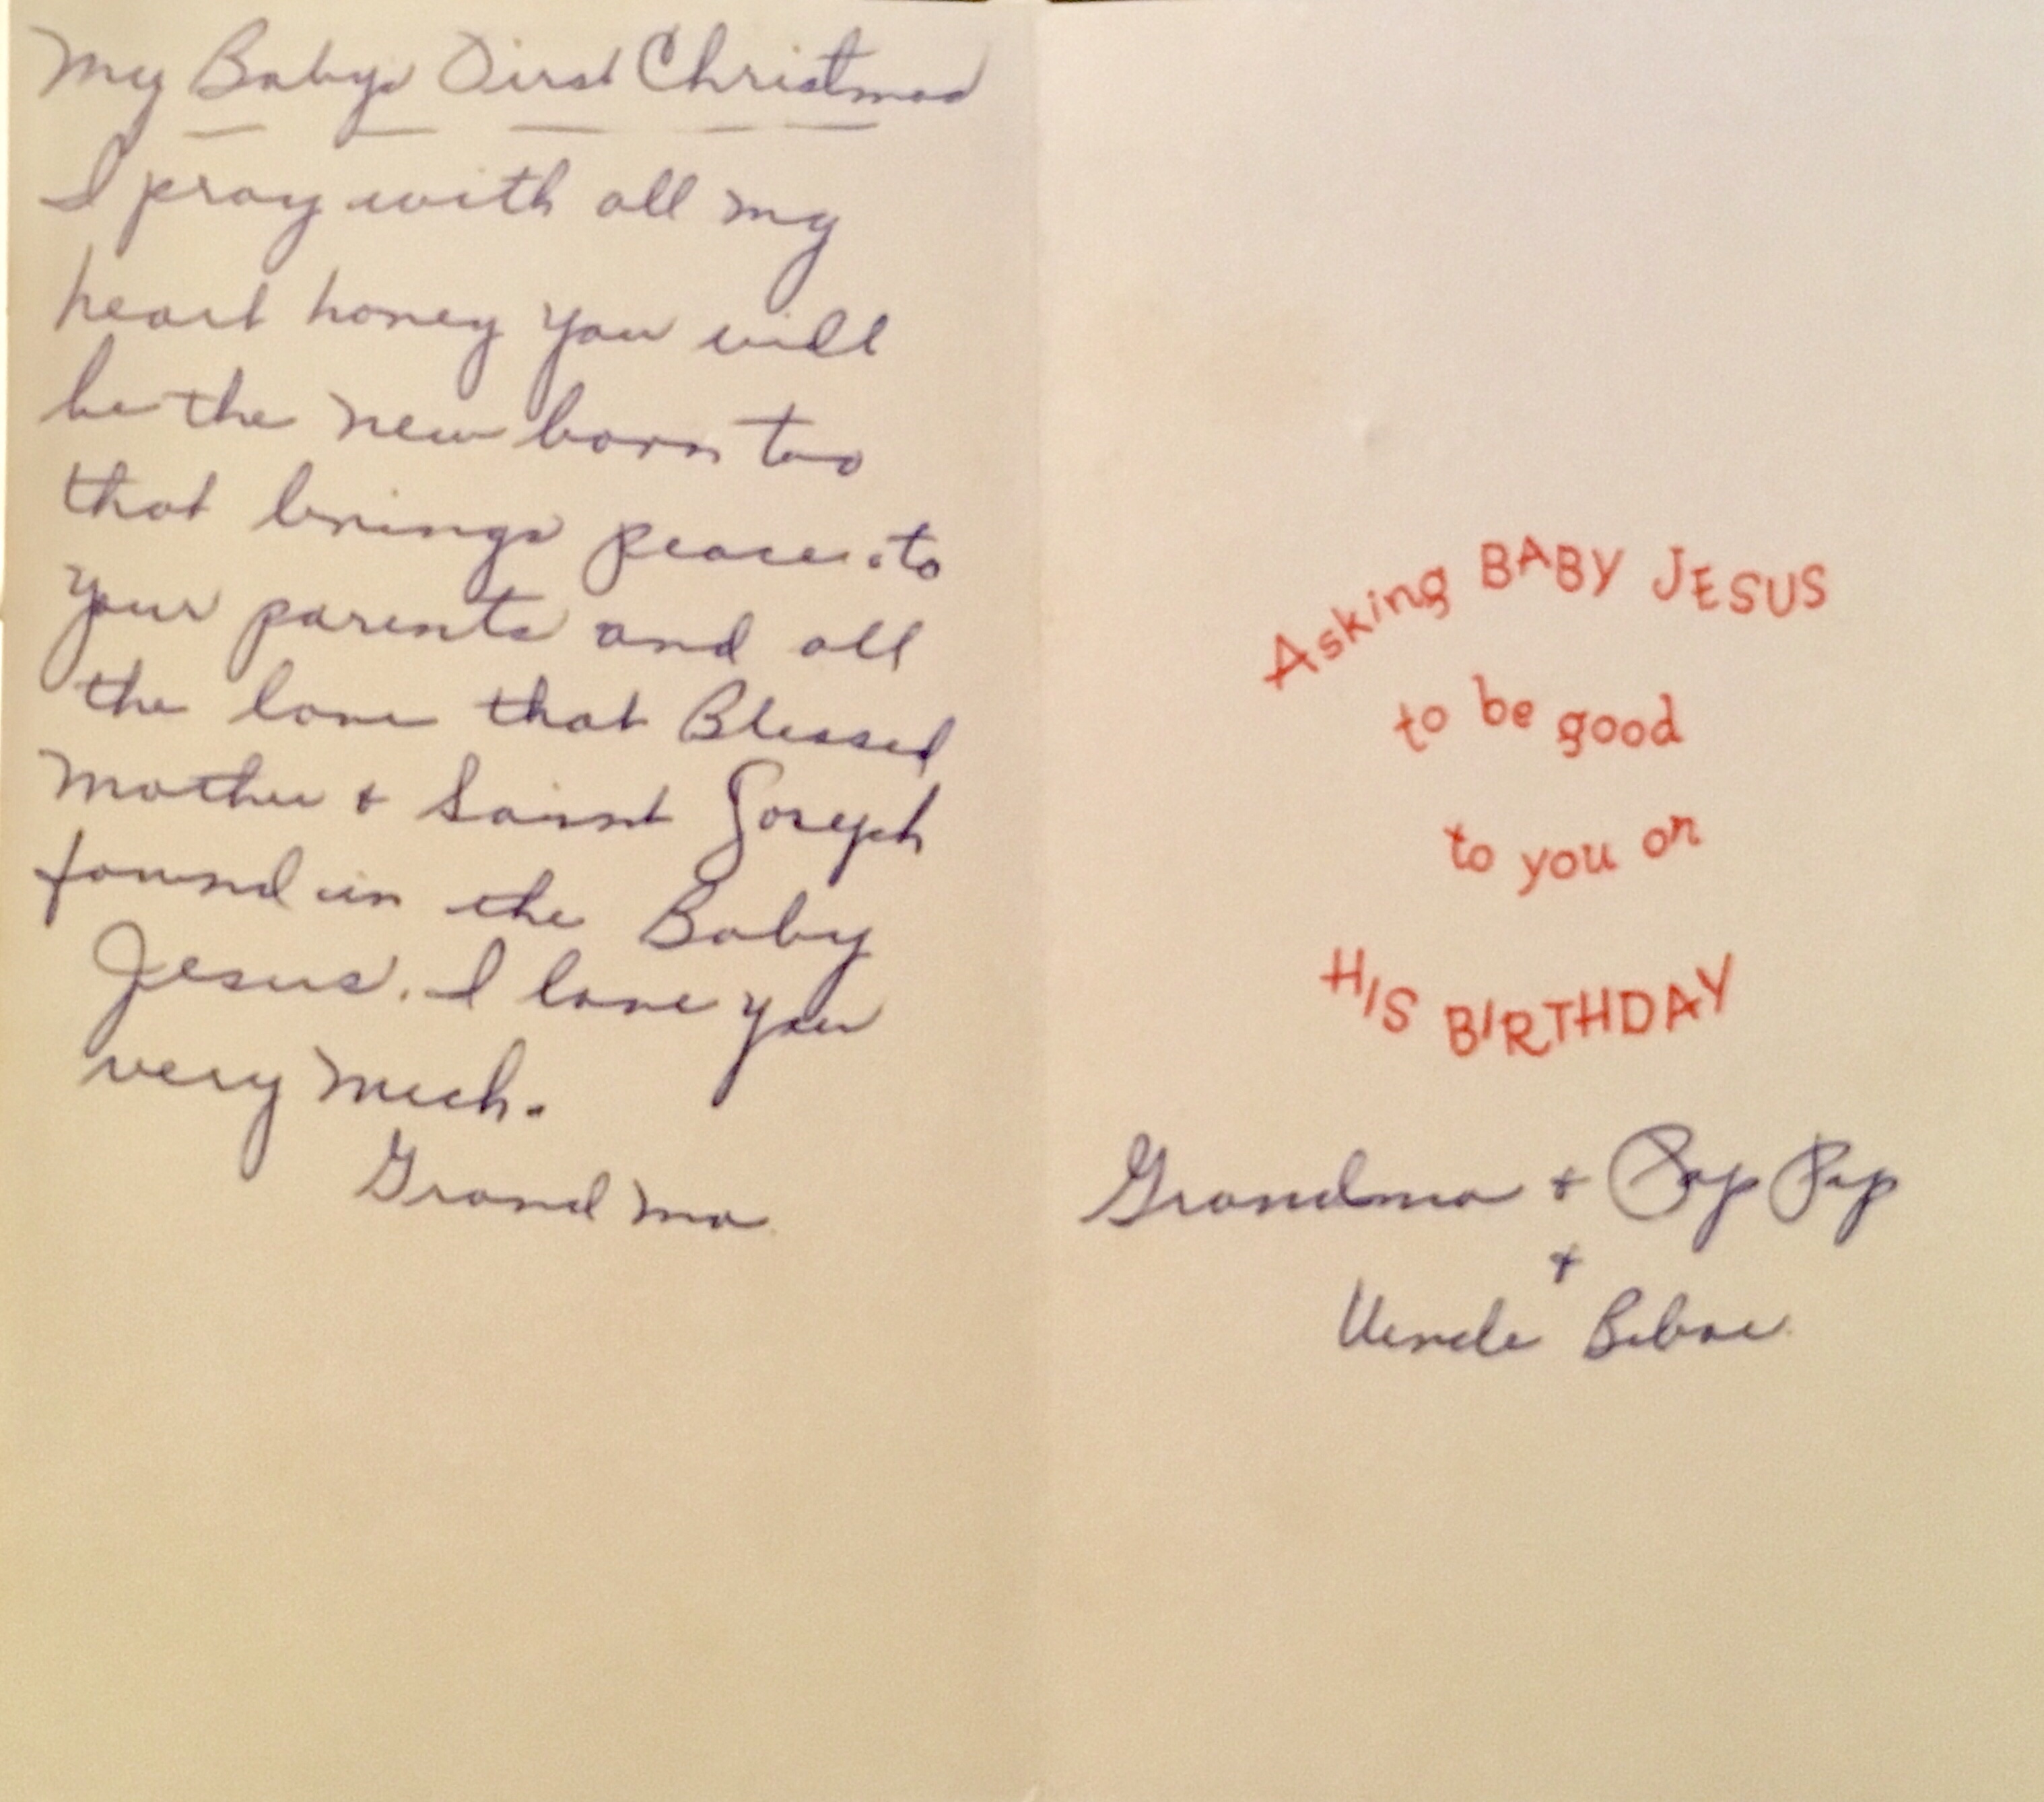 My Babys First Christmas
I pray with all my
heart honey you will
be the new born too
that brings peace to
your parents and all
the love that Blessed
Mother + Saint Joseph
found in the Baby
Jesus. I love you
very much.
Grand ma
Asking BABY JESUS
to be good
to you on
HIS BIRTHDAY
Grandma + Pap Pap
+
Uncle